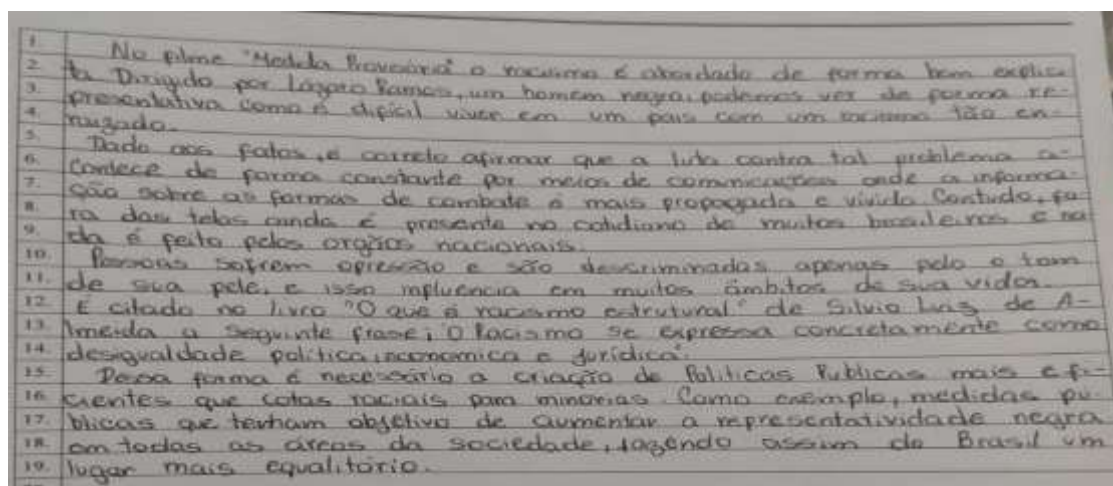 1. No filme "Medida Provisória" o racismo é abordado de forma bem explici-
2. ta Dirigido por Lázaro Ramos, um homem negro, podemos ver de forma re-
3. presentativa como é difícil viver em um país com um racismo tão en-
4. ruizado.
5. Dado aos fatos, é correto afirmar que a luta contra tal problema a-
6. contece de forma constante por meios de comunicações onde a informa-
7. ção sobre as formas de combate é mais propagada e vivida Contudo, fo-
8. ra das telas ainda é presente no cotidiano de muitos brasileiros e na
9. da é feito pelos orgãos nacionais.
10. Pessoas sofrem opressão e são descriminadas apenas pelo o tom
11. de sua pele, e isso influencia em muitos âmbitos de sua vidas.
12. É citado no livro "O que é racismo estrutural" de Silvio Luiz de A-
13. lmeida a seguinte frase; O Racismo se expressa concretamente como
14. desigualdade política, inconomica e jurídica".
15. Dessa forma é necessário a criação de Politicas Publicas mais efi-
16. cientes que cotas raciais para minorias. Como exemplo, medidas pu-
17. blicas que tenham objetivo de aumentar a representatividade negra
18. em todas as áreas da sociedade, fazendo assim do Brasil um
19. lugar mais equalitório.